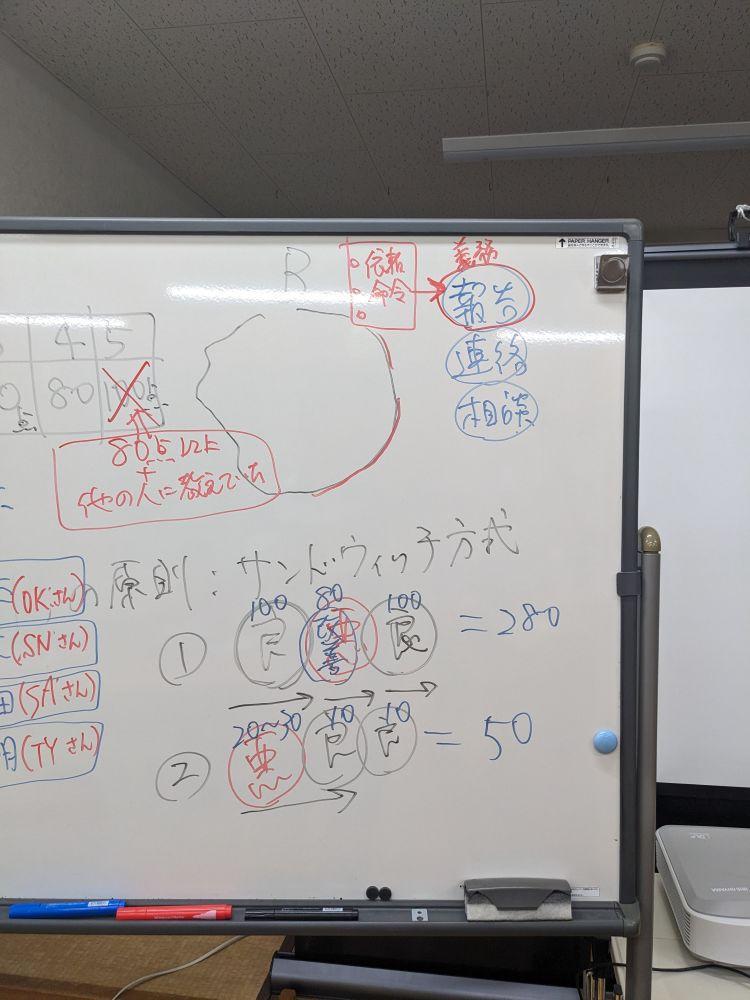 ↑ PAPER HANGER
B
依頼
命令
義務
報告
連絡
相談
4 5
80 100点
80点以上
+
他の人に教えている
の原則：サンドウィッチ方式
(OKさん)
(SNさん)
田(SAさん)
明(TYさん)
100 80 100
① 良 改善 悪 良 = 280
20~30 10 10
② 悪 良 良 = 50